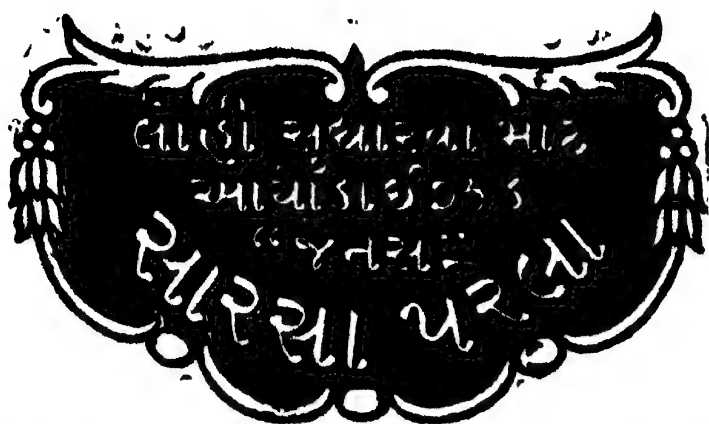 લોહી સુધારવા માટે
આયોડાઈઝ્ડ
સારસા પરીલા